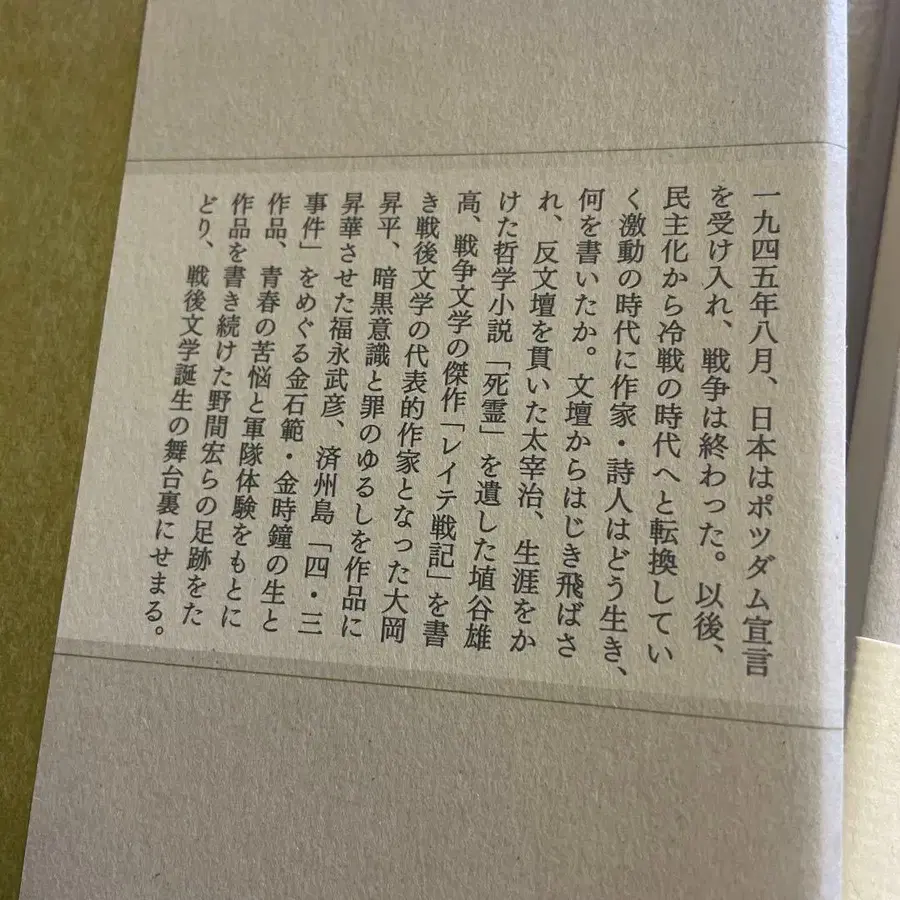 一九四五年八月、日本はポツダム宣言
を受け入れ、戦争は終わった。以後、
民主化から冷戦の時代へと転換してい
く激動の時代に作家・詩人はどう生き、
何を書いたか。文壇からはじき飛ばさ
れ、反文壇を貫いた太宰治、生涯をか
けた哲学小説「死霊」を遺した埴谷雄
高、戦争文学の傑作「レイテ戦記」を書
き戦後文学の代表的作家となった大岡
昇平、暗黒意識と罪のゆるしを作品に
昇華させた福永武彦、済州島「四・三
事件」をめぐる金石範・金時鐘の生と
作品、青春の苦悩と軍隊体験をもとに
作品を書き続けた野間宏らの足跡をた
どり、戦後文学誕生の舞台裏にせまる。